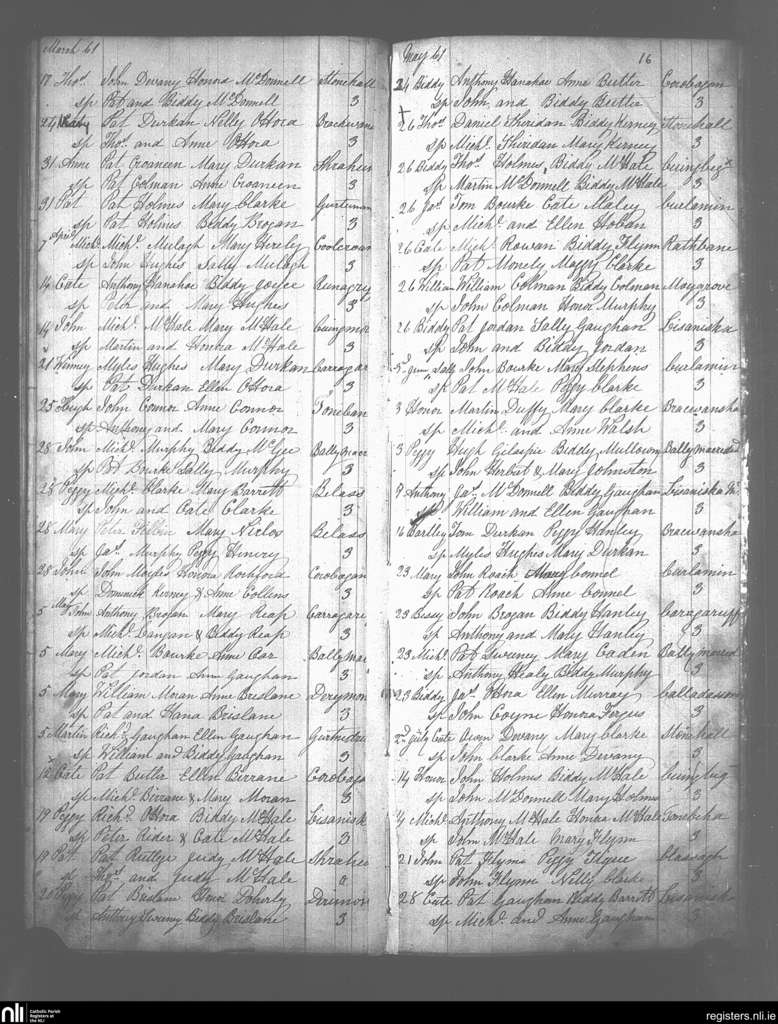 March 61
17 Thos. John Devany Honora McDonnell Stonehall
sp Pat and Biddy McDonnell 3
24 Pat Durkan Nelly OHora
sp Thos. and Anne OHora 3
31 Anne Pat Croaneen Mary Durkan
sp Pat Colman Anne Croaneen 3
31 Pat Pat Holmes Mary Clarke
sp Pat Holmes Biddy Brogan 3
April
7 Michl. Michl. Mulagh Mary Coolcroan
sp John Hughes Sally Mulagh 3
14 Cate Anthony Hanahoe Biddy Joyce
sp Peter and Mary Hughes 3
14 John Michl. McHale Mary McHale
sp Martin and Honora McHale 3
21 Winney Myles Hughes Mary Durkan Carragar
sp Pat Durkan Ellen OHora 3
25 Hugh John Connor Anne Connor
sp Anthony and Mary Connor 3
28 John Michl. Murphy Biddy McGee
sp Pat Sally Murphy 3
28 Peggy Michl. Clarke Mary Barrett Belass
sp John and Cate Clarke 3
28 Mary Peter Mary Belass
sp Jas. Murphy Peggy 3
28 John John Moyles Honora Rochford Corobogan
sp Dominick Kerney & Anne Collens 3
May
5 John Anthony Brogan Mary Reap
sp Michl. & Biddy Reap 3
5 Mary Michl. Bourke Anne
sp Pat Jordan Ann Gaughan 3
5 Mary William Moran Anne Brislane
sp Pat and Hana Brislane 3
5 Martin Richd. Gaughan Ellen Gaughan
sp William and Biddy Gaughan 3
12 Cate Pat Butler Ellen Birrane
sp Michl. Birrane & Mary Moran 3
19 Peggy Richd. OHora Biddy McHale Lisanisk
sp Peter Rider & Cate McHale 3
19 Pat Pat Ruttge Judy McHale
sp Thos. and Judy McHale
20 Peggy Pat Brislane Honor Doherty
sp Anthony Sweeny Biddy Brislane 3
May 61 16
24 Biddy Anthony Hanahoe Anne Butler Corobogan
sp John and Biddy Butler 3
26 Thos. Daniel Sheridan Biddy Kerney Stonehall
sp Michl. Sheridan Mary Kerney 3
26 Biddy Thos. Holmes Biddy McHale
sp Martin McDonnell Biddy McHale 3
26 Jas. Tom Bourke Cate Maley Curlamin
sp Michl. and Ellen Hoban 3
26 Cate Michl. Rowan Biddy Flynn Rathbane
sp Pat Monely Maggy Clarke 3
26 William William Colman Biddy Colman Moygrove
sp John Colman Honor Murphy 3
26 Biddy Pat Jordan Sally Gaughan Lisaniska
sp John and Biddy Jordan 3
5 June John Bourke Mary Stephens Curlamin
sp Pat McHale Peggy Clarke 3
3 Honor Martin Duffy Mary Clarke Bracwansha
sp Michl. and Anne Walsh 3
3 Peggy Hugh Gilaspie Biddy Mullown
sp John Herbut & Mary Johnston 3
9 Anthony Jas. McDonnell Biddy Gaughan Lisaniska
sp William and Ellen Gaughan 3
16 Bartley Tom Durkan Peggy Hanley Bracwansha
sp Myles Hughes Mary Durkan 3
23 Mary John Roach Mary Connel Curlamin
sp Pat Roach Anne Connel 3
23 Bessy John Brogan Biddy Hanley
sp Anthony and Mary Hanley 3
23 Michl. Pat Sweeney Mary Cadin
sp Anthony Healy Biddy Murphy 3
23 Biddy Jas. OHora Ellen Murray
sp John Coyne Honora Fergus 3
2d July Cate Owen Devany Mary Clarke Stonehall
sp John Clarke Anne Devany 3
14 Honor John Holmes Biddy McHale
sp John McDonnell Mary Holmes 3
Michl. Anthony McHale Honora McHale
sp John McHale Mary Flynn 3
21 John Pat Flynn Peggy
sp John Flynn Nelly Clarke 3
28 Cate Pat Gaughan Biddy Barrett Lisaniska
sp Michl. and Anne Gaughan 3
nli
Catholic Parish
Registers at
the NLI
registers.nli.ie